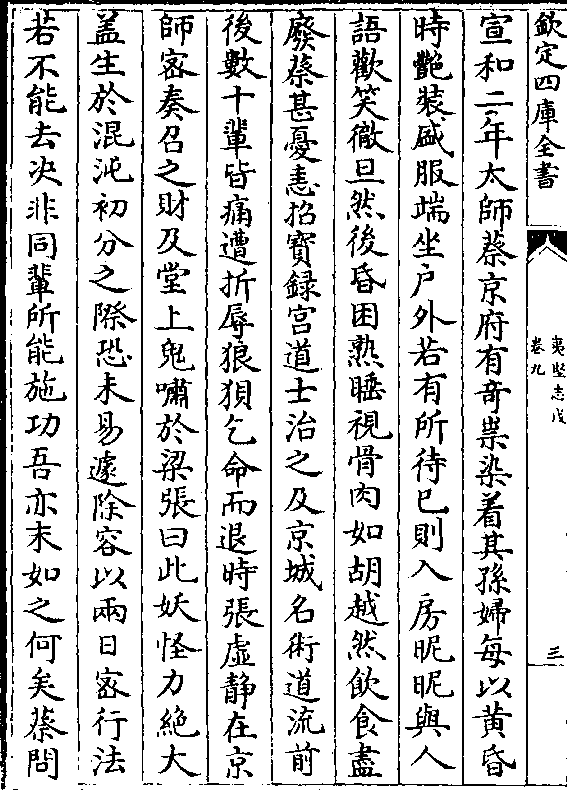 欽定四庫全書
夷堅志戊
卷九
三
宣和二年太師蔡京府有奇祟染着其孫婦每以黄昏
時艶裝盛服端坐户外若有所待已則入房昵昵與人
語歡笑徹旦然後昏困熟睡視骨肉如胡越然飲食盡
廢蔡甚憂恚招寳録宫道士治之及京城名術道流前
後數十輩皆痛遭折辱狼狽乞命而退時張虚静在京
師宻奏召之財及堂上鬼嘯於梁張曰此妖怪力絶大
盖生於混沌初分之際恐未易遽除容以兩日宻行法
若不能去决非同輩所能施功吾亦末如之何矣蔡問